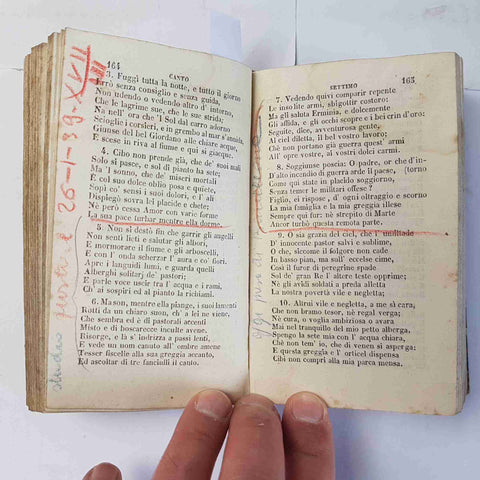 164
CANTO
3. Fuggì tutta la notte, e tutto il giorno
Errò senza consiglio e senza guida,
Non udendo o vedendo altro d' intorno,
Che le lagrime sue, che le sue strida.
Ma nell' ora che 'l Sol dal carro adorno
Scioglie i corsieri, e in grembo al mar s'annida,
Giunse del bel Giordano alle chiare acque,
E scese in riva al fiume, e qui si giacque.
4. Cibo non prende già, che de' suoi mali
Solo si pasce, e sol di pianto ha sete;
Ma 'l Sonno, che de' miseri mortali
È col suo dolce oblio posa e quiete,
Sopì co' sensi i suoi dolori, e l' ali
Dispiegò sovra lei placide e chete;
Nè però cessa Amor con varie forme
La sua pace turbar mentre ella dorme.
5. Non si destò fin che garrir gli augelli
Non sentì lieti e salutar gli albori,
E mormorare il fiume e gli arboscelli,
E con l' onda scherzar l' aura e co' fiori.
Apre i languidi lumi, e guarda quelli
Alberghi solitarj de' pastori;
E parle voce uscir tra l' acqua e i rami,
Ch' ai sospiri ed al pianto la richiami.
6. Ma son, mentre ella piange, i suoi lamenti
Rotti da un chiaro suon, ch' a lei ne viene,
Che sembra ed è di pastorali accenti
Misto e di boscarecce inculte avene.
Risorge, e là s' indrizza a passi lenti,
E vede un uom canuto all' ombre amene
Tesser fiscelle alla sua greggia accanto,
Ed ascoltar di tre fanciulli il canto.
26-1-39-XVII
SETTIMO
165
7. Vedendo quivi comparir repente
Le insolite armi, sbigottir costoro;
Ma gli saluta Erminia, e dolcemente
Gli affida, e gli occhi scopre e i bei crin d'oro:
Seguite, dice, avventurosa gente,
Al ciel diletta, il bel vostro lavoro;
Chè non portano già guerra quest' armi
All' opre vostre, ai vostri dolci carmi.
8. Soggiunse poscia: O padre, or che d'in-
D'alto incendio di guerra arde il paese, (torno
Come qui state in placido soggiorno,
Senza temer le militari offese?
Figlio, ei rispose, d' ogni oltraggio e scorno
La mia famiglia e la mia greggia illese
Sempre qui fur: nè strepito di Marte
Ancor turbò questa remota parte.
9. O sia grazia del ciel, che l' umiltade
D' innocente pastor salvi e sublime,
O che, siccome il folgore non cade
In basso pian, ma sull' eccelse cime,
Così il furor di peregrine spade
Sol de' gran Re l' altere teste opprime;
Nè gli avidi soldati a preda alletta
La nostra povertà vile e negletta;
10. Altrui vile e negletta, a me sì cara,
Che non bramo tesor, nè regal verga;
Nè cura, o voglia ambiziosa o avara
Mai nel tranquillo del mio petto alberga.
Spengo la sete mia con l' acqua chiara,
Chè non tem' io, che di venen si asperga:
E questa greggia e l' orticel dispensa
Cibi non compri alla mia parca mensa.